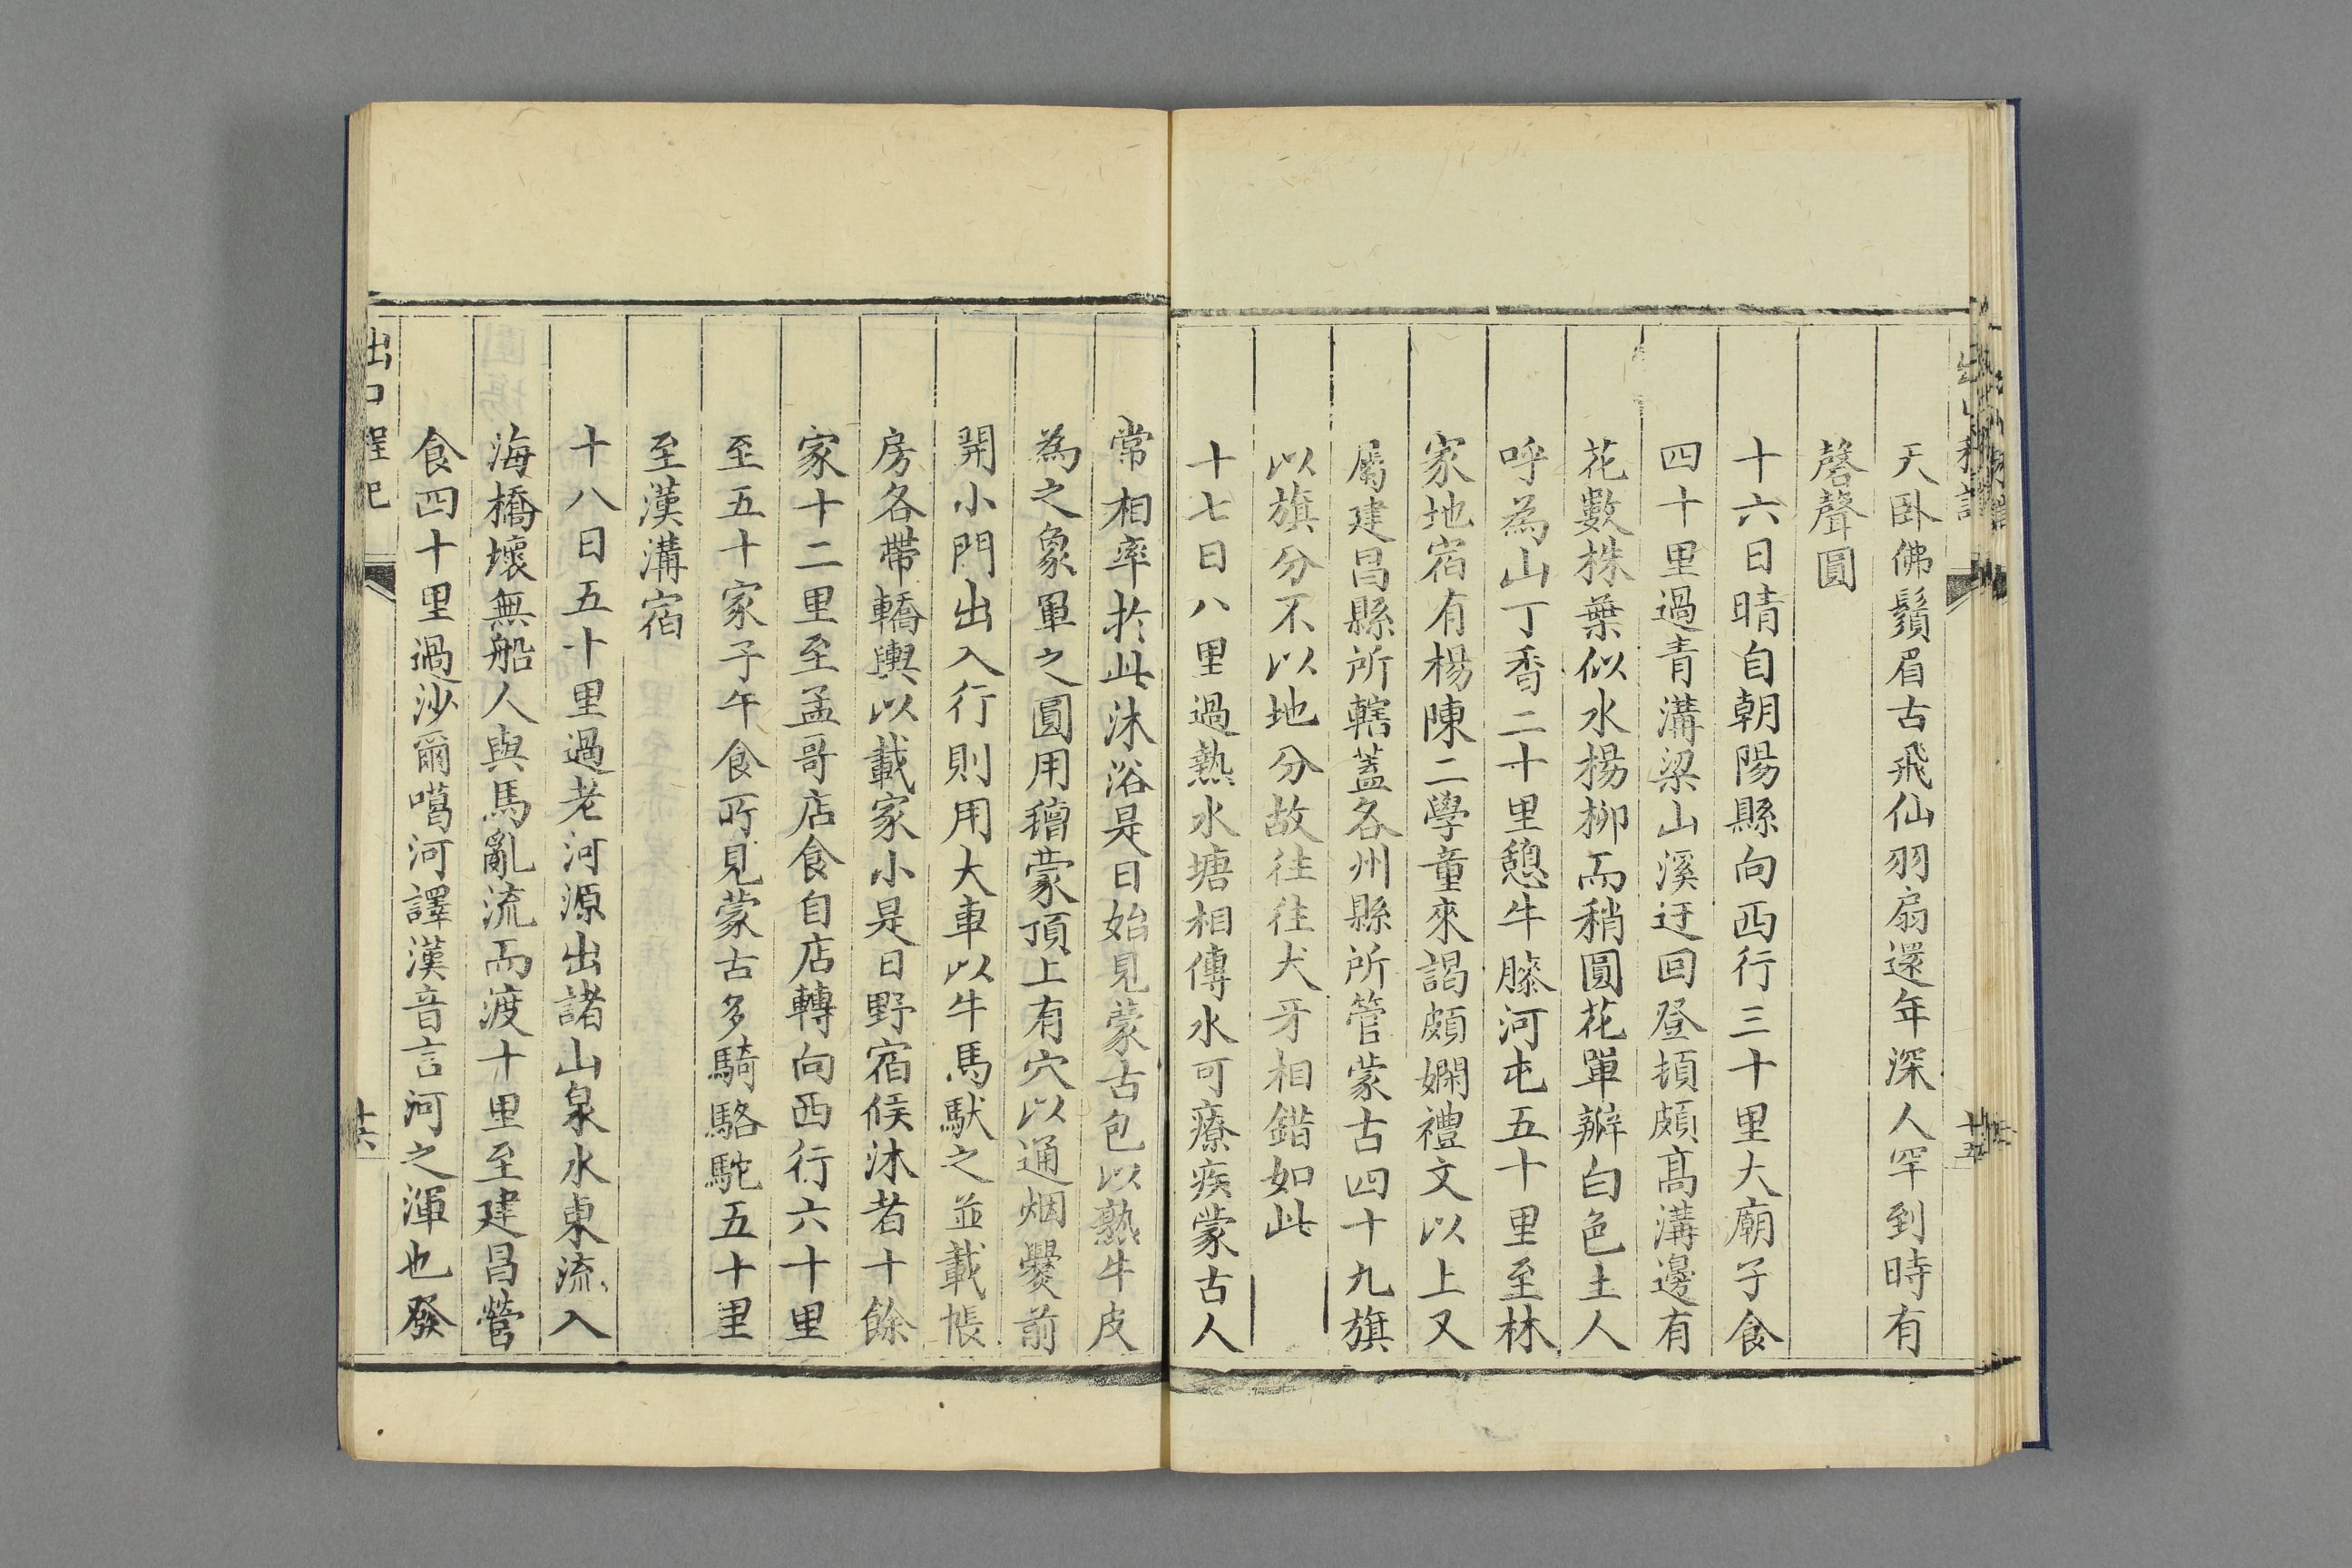 天卧佛鬚眉古飛仙羽扇還年深人罕到時有
磬聲圓
十六日晴自朝陽縣向西行三十里大廟子食
四十里過青溝梁山溪迂回登頓頗高溝邊有
花數株葉似水楊柳而稍圓花單瓣白色土人
呼為山丁香二十里憩牛膝河屯五十里至林
家地宿有楊陳二學童來謁頗嫻禮文以上又
屬建昌縣所轄蓋各州縣所管蒙古四十九旗
以旗分不以地分故往往犬牙相錯如此
十七日八里過熱水塘相傳水可療疾蒙古人
常相率於此沐浴是日始見蒙古包以熟牛皮
為之象軍之圓用氊蒙頂上有穴以通烟爨前
開小門出入行則用大車以牛馬馱之並載帳
房各帶轎輿以載家小是日野宿候沐者十餘
家十二里至孟哥店食自店轉向西行六十里
至五十家子午食所見蒙古多騎駱駝五十里
至漢溝宿
十八日五十里過老河源出諸山泉水東流入
海橋壞無船人與馬亂流而渡十里至建昌營
食四十里過沙爾噶河譯漢音言河之渾也發
出口程記
十六